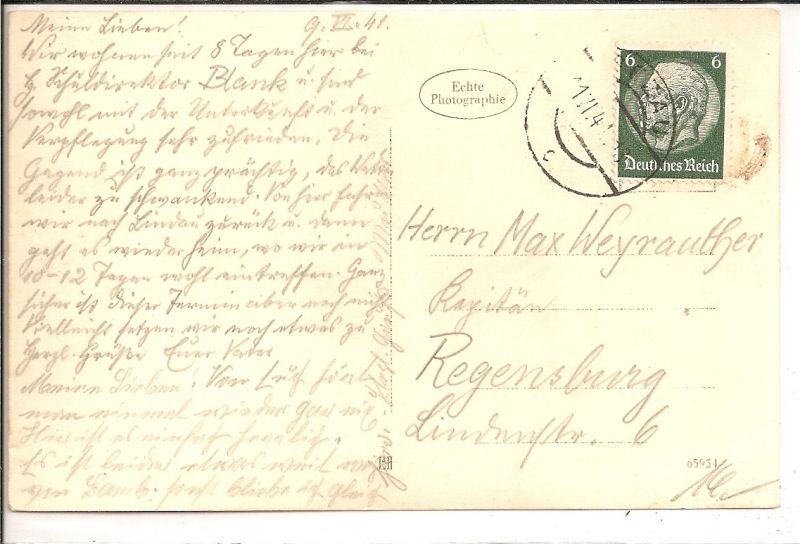 Meine Lieben! 9. VI. 41.
Wir wohnen seit 8 Tagen hier bei
H. Schuldirektor Blank u. sind
sowohl mit der Unterkunft u. der
Verpflegung sehr zufrieden. Die
Gegend ist ganz prächtig, das
leider zu schwankend. Von hier
wir nach Lindau zurück u. dann
geht es wieder heim, wo wir in
10-12 Tagen wohl eintreffen. Ganz
sicher ist dieser Termin aber noch nicht
Vielleicht setzen wir noch etwas zu
Herzl. Grüße Euer Vater
Meine Lieben! Von Euch hört
man einmal wieder gar nix
Hier ist es einfach herrlich.
Es ist leider etwas weit weg
von Bamb. sonst bliebe ich gleich
Echte
Photographie
6 6
Deutsches Reich
Herrn Max Weyrauther
Kapitän
Regensburg
Lindenstr. 6
65934